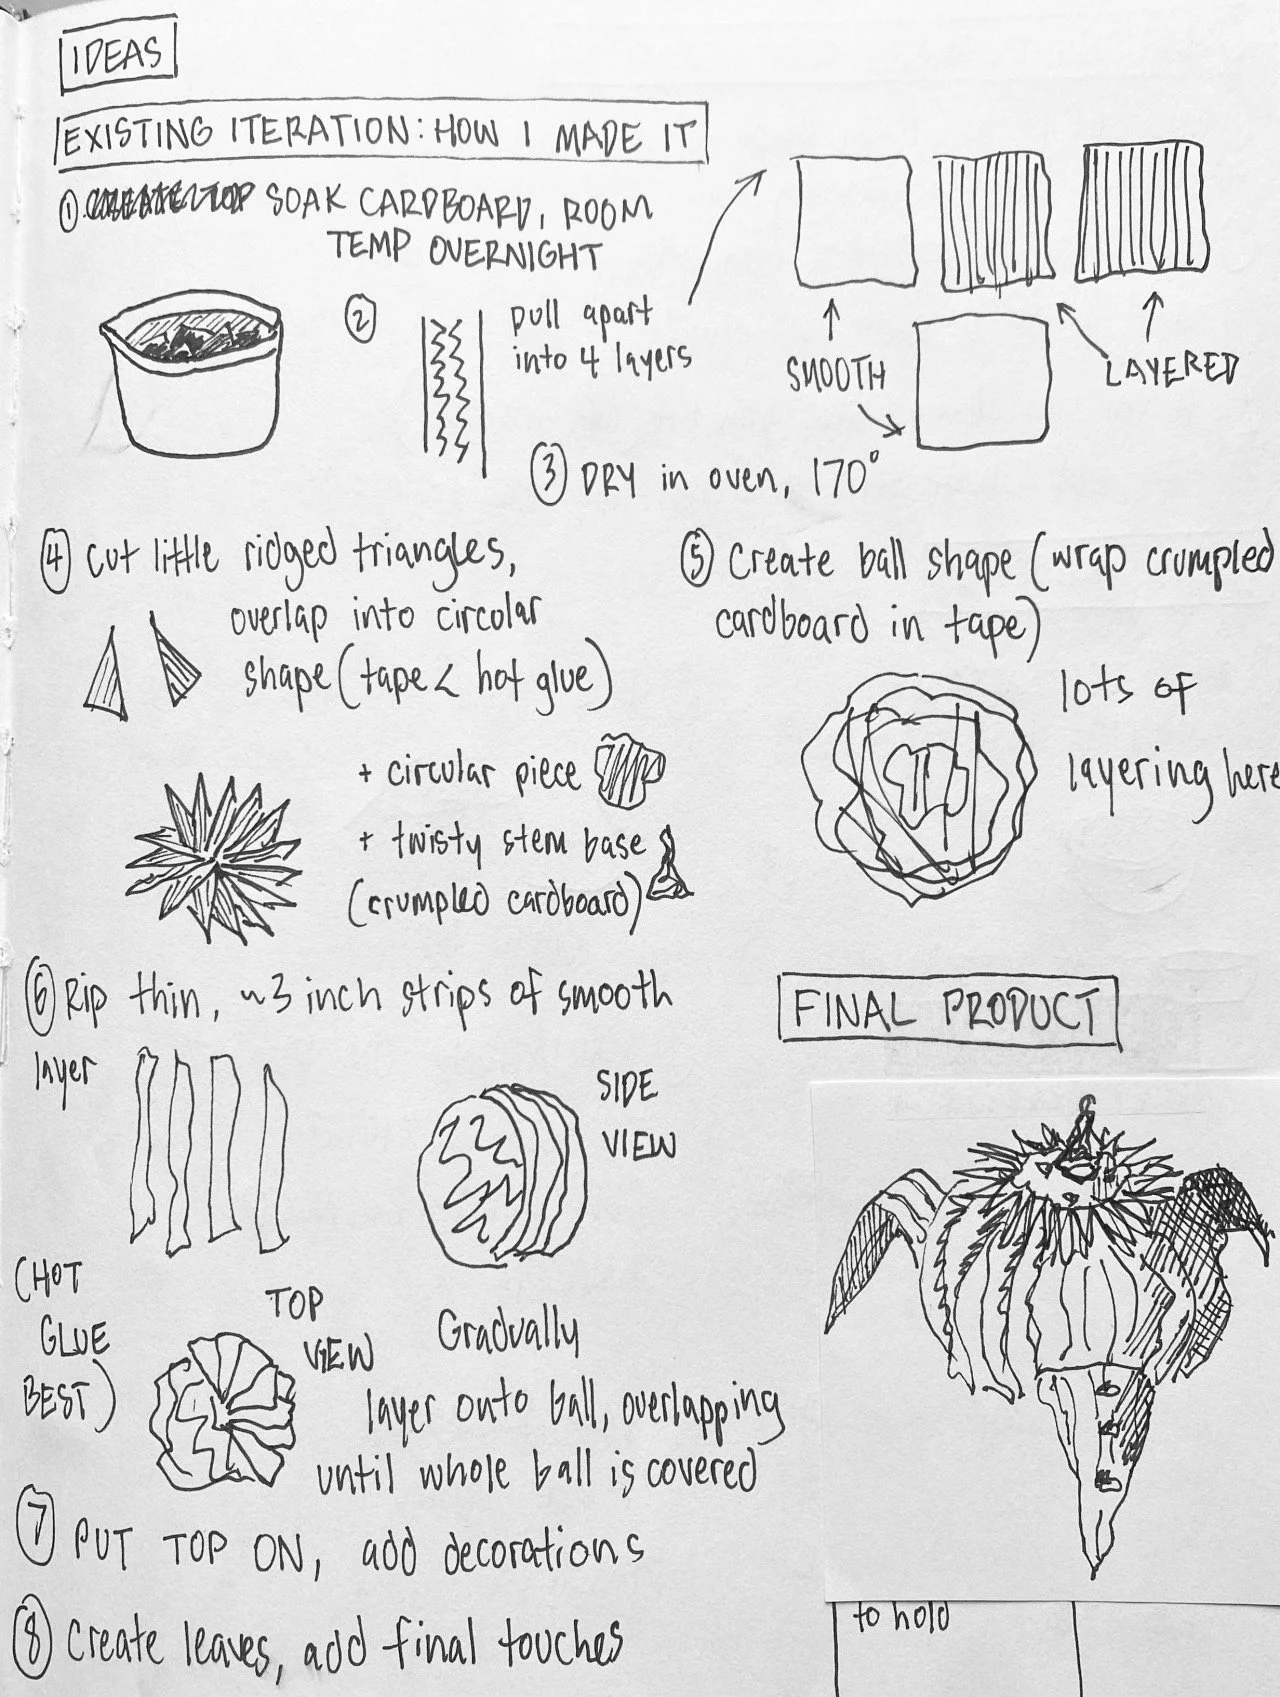 IDEAS
EXISTING ITERATION: HOW I MADE IT
① SOAK CARDBOARD, ROOM
TEMP OVERNIGHT
② pull apart
into 4 layers
SMOOTH
LAYERED
③ DRY in oven, 170°
④ cut little ridged triangles,
overlap into circular
shape (tape < hot glue)
+ circular piece
+ twisty stem base
(crumpled cardboard)
⑤ Create ball shape (wrap crumpled
cardboard in tape)
lots of
layering here
⑥ Rip thin, ~3 inch strips of smooth
layer
SIDE
VIEW
(HOT
GLUE
BEST)
TOP
VIEW
Gradually
layer onto ball, overlapping
until whole ball is covered
⑦ PUT TOP ON, add decorations
⑧ Create leaves, add final touches
FINAL PRODUCT
to hold